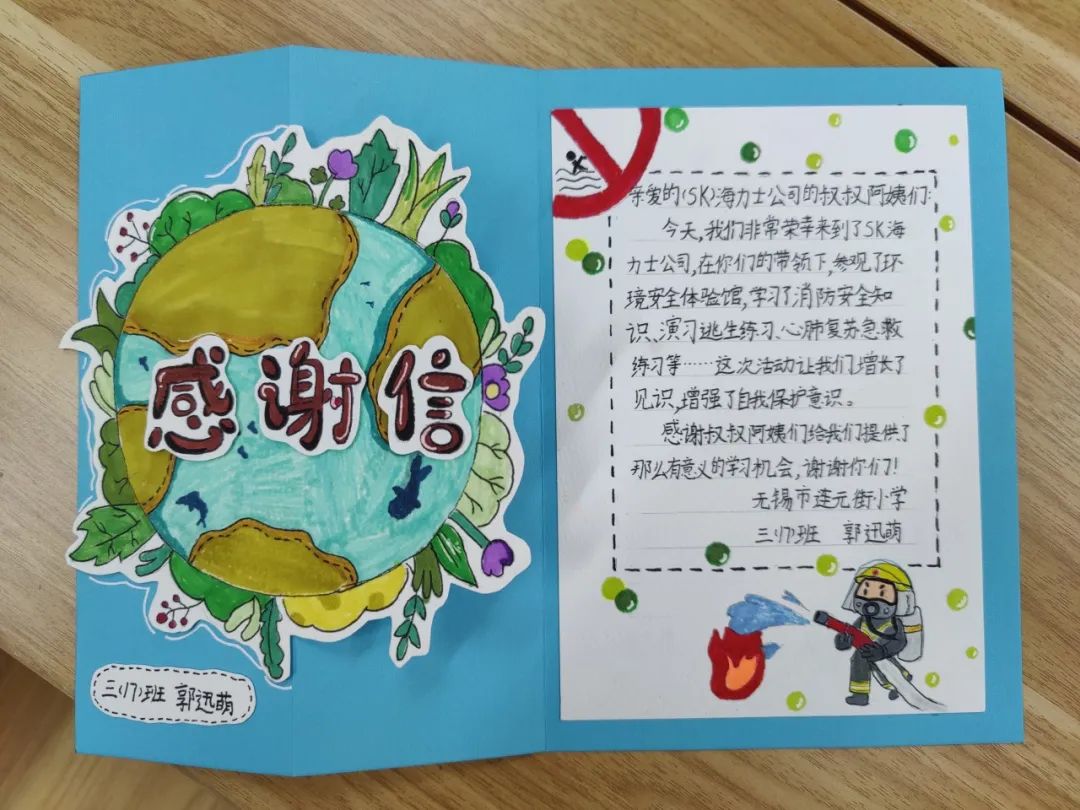 感谢信
三(17)班 郭迅萌
亲爱的(SK)海力士公司的叔叔阿姨们:
今天,我们非常荣幸来到了SK海
力士公司,在你们的带领下,参观了环
境安全体验馆,学习了消防安全知
识、演习逃生练习、心肺复苏急救
练习等……这次活动让我们增长了
见识,增强了自我保护意识。
感谢叔叔阿姨们给我们提供了
那么有意义的学习机会,谢谢你们!
无锡市连元街小学
三(17)班 郭迅萌